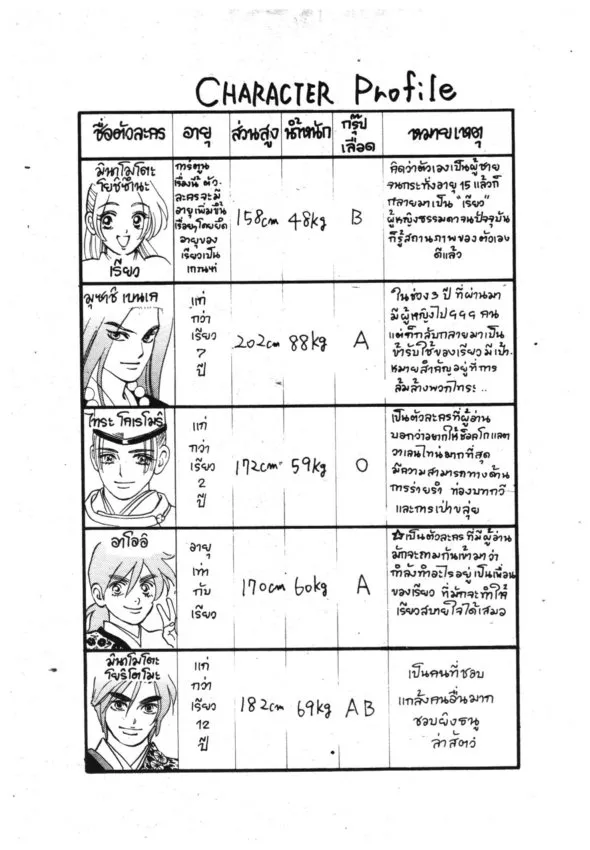 CHARACTER Profile
ชื่อตัวละคร อายุ ส่วนสูง น้ำหนัก กรุ๊ป เลือด หมายเหตุ
มินาโมโตะ
โยชิซึเนะ
เรียว
การ์ตูน
เรื่องนี้ ตัว
ละครจะมี
อายุเพิ่มขึ้น
เรื่อยๆ โดยยึด
อายุของ
เรียวเป็น
เกณฑ์
158cm 48kg B
คิดว่าตัวเองเป็นผู้ชาย
จนกระทั่งอายุ 15 แล้วก็
กลายมาเป็น "เรียว"
ผู้หญิงธรรมดาจนปัจจุบัน
ก็รู้สถานภาพของตัวเอง
ดีแล้ว
มุซาชิ เบนเค
แก่
กว่า
เรียว
7
ปี
202cm 88kg A
ในช่วง 3 ปี ที่ผ่านมา
มีผู้หญิงไป 999 คน
แต่ก็กลับกลายมาเป็น
ข้ารับใช้ของเรียว มีเป้า
หมายสำคัญอยู่ที่การ
ล้มล้างพวกไทระ ..
ไทระ โคเรโมริ
แก่
กว่า
เรียว
2
ปี
172cm 59kg O
เป็นตัวละครที่ผู้อ่าน
บอกว่าอยากให้ช็อคโกแลต
วาเลนไทน์มากที่สุด
มีความสามารถทางด้าน
การร่ายรำ ท่องบทกวี
และการเป่าขลุ่ย
อาโออิ
อายุ
เท่า
กับ
เรียว
170cm 60kg A
☆เป็นตัวละครที่มีผู้อ่าน
มักจะถามกันเข้ามาว่า
กำลังทำอะไรอยู่ เป็นเพื่อน
ของเรียว ที่มักจะทำให้
เรียวสบายใจได้เสมอ
มินาโมโตะ
โยริโตโมะ
แก่
กว่า
เรียว
12
ปี
182cm 69kg AB
เป็นคนที่ชอบ
แกล้งคนอื่นมาก
ชอบยิงธนู
ล่าสัตว์